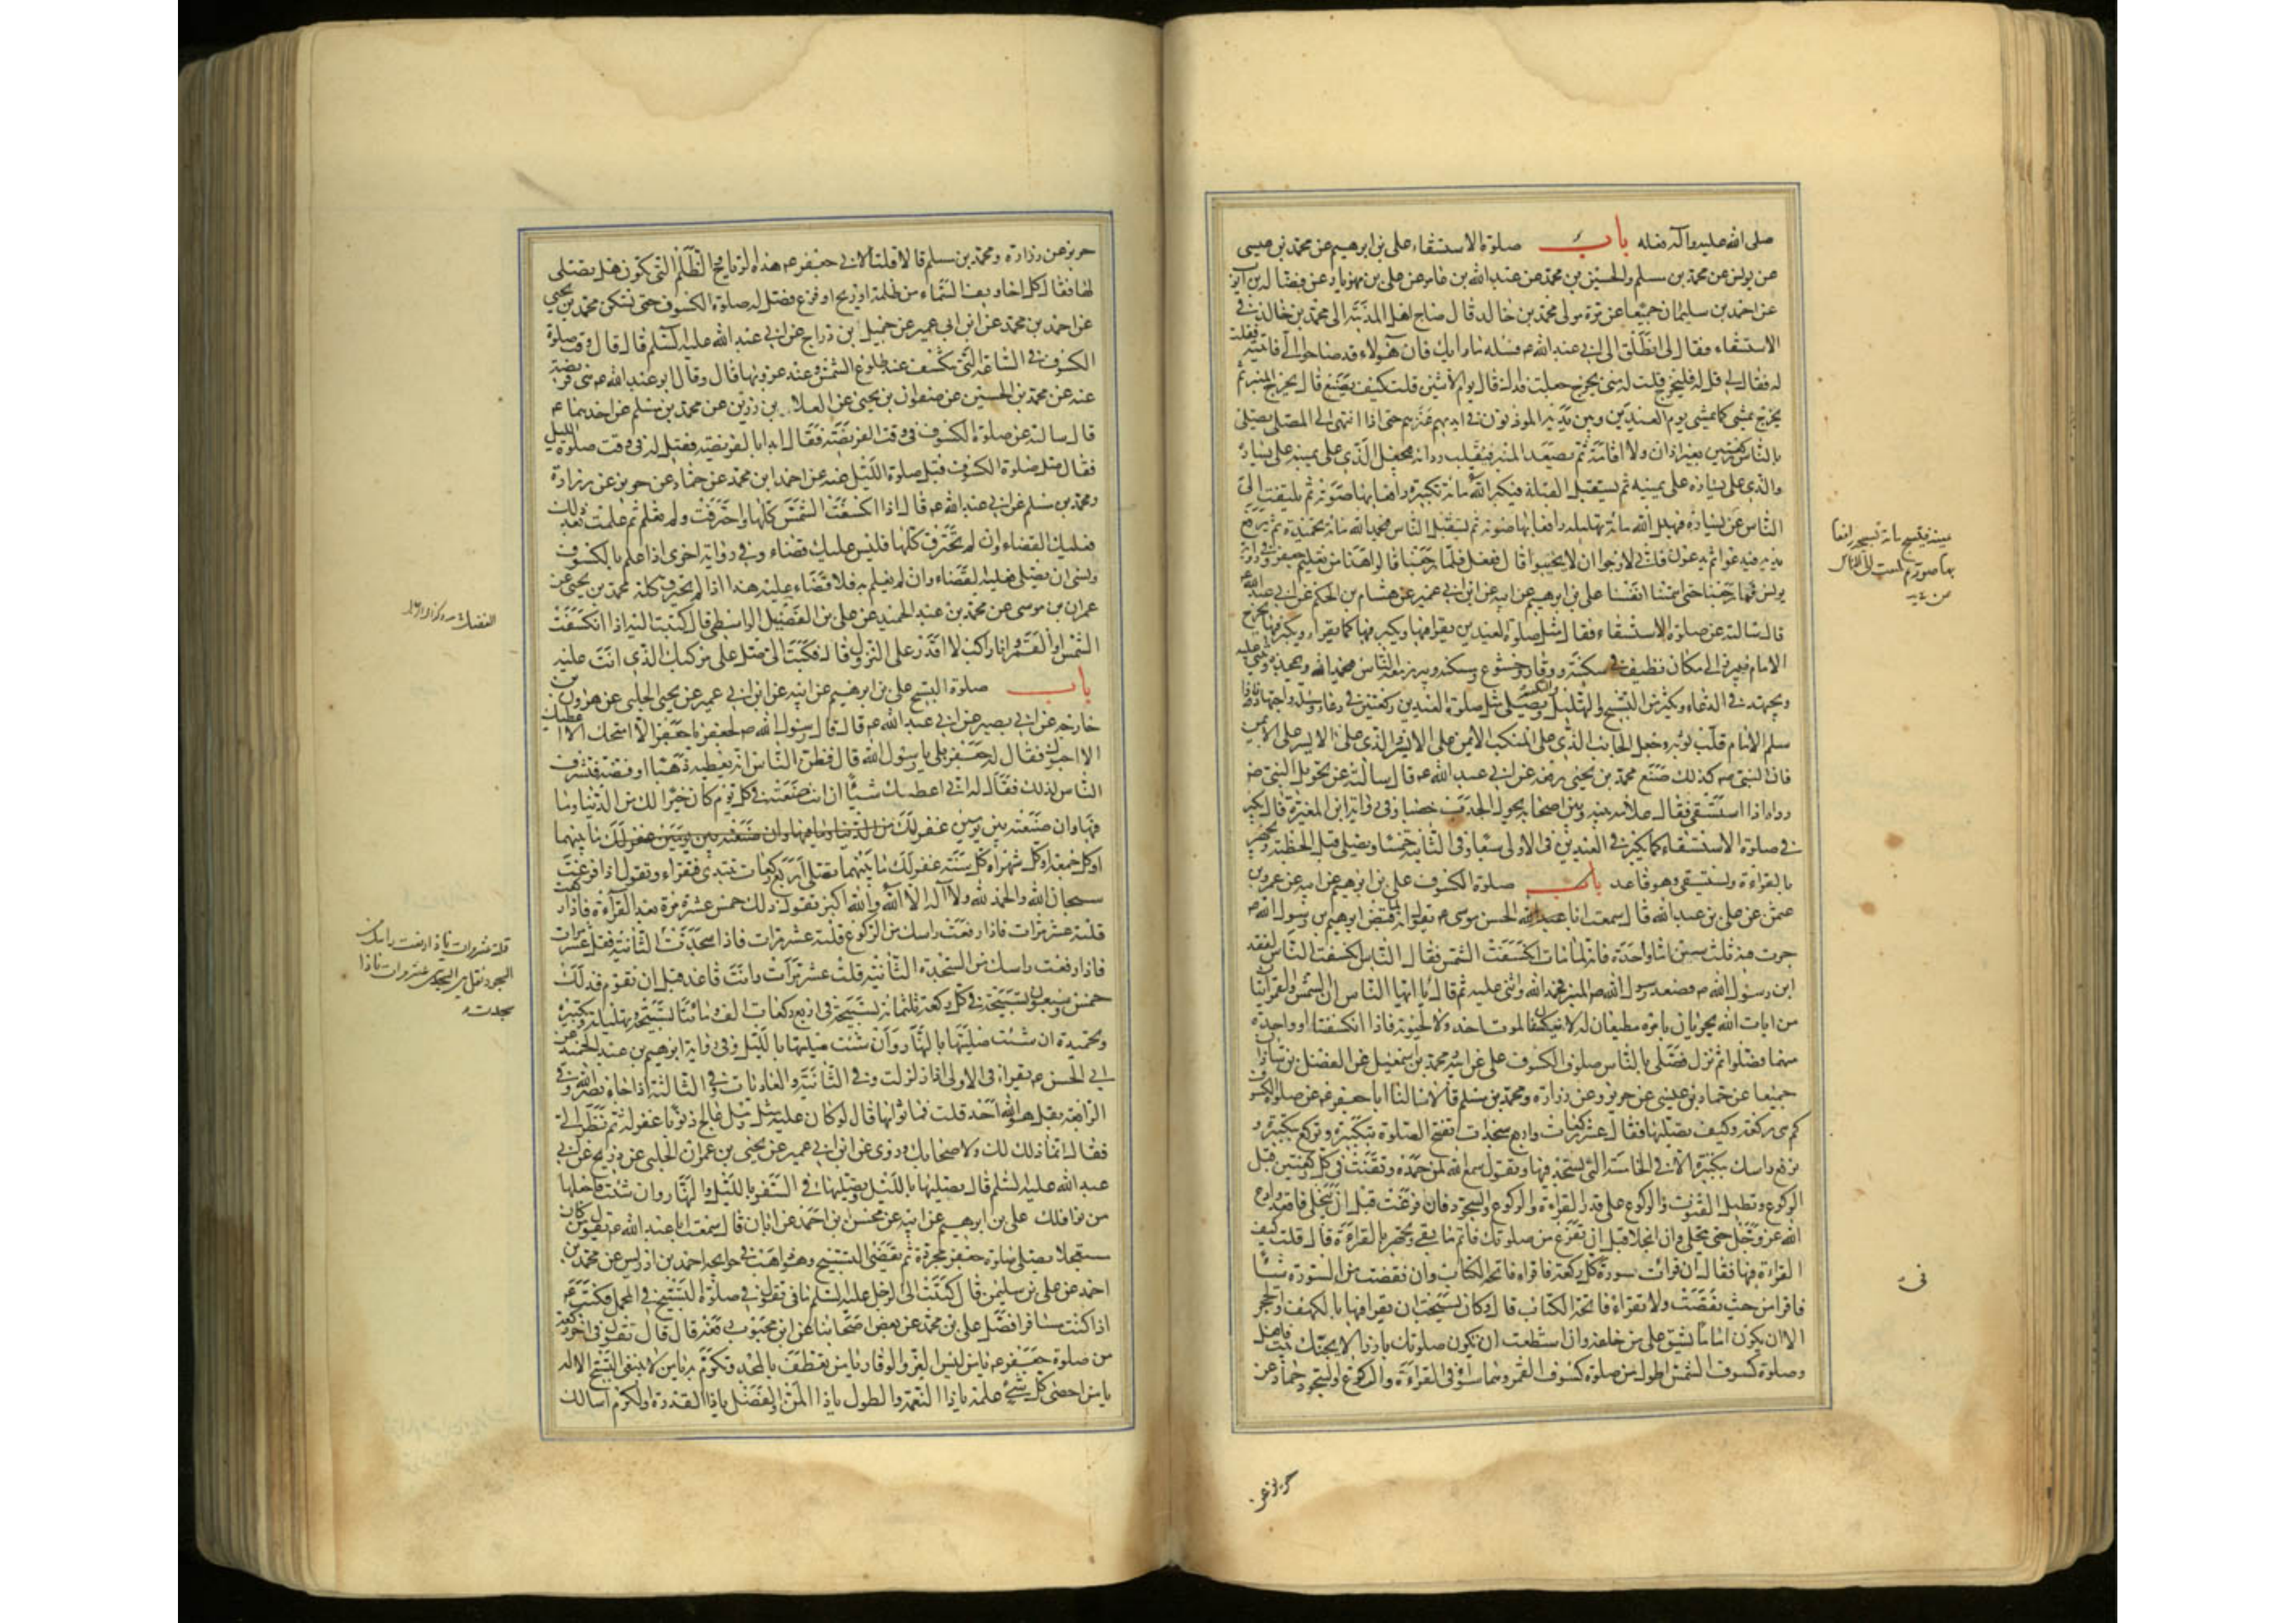 صلى الله عليه وآله مثله باب صلوة الاستسقاء علي بن ابرهيم عن محمد بن عيسى
عن يونس عن محمد بن مسلم والحسين بن محمد عن عبد الله بن عامر عن علي بن مهزيار عن فضالة بن ايوب
عن احمد بن سليمان جميعا عن مرة مولى محمد بن خالد قال صاح اهل المدينة الى محمد بن خالد في
الاستسقاء فقال لي انطلق الى ابي عبد الله ع فسله ما رأيك فان هؤلاء قد صاحوا الي فاتيته فقلت
له فقال لي قل له فليخرج قلت له متى يخرج جعلت فداك قال يوم الاثنين قلت كيف يصنع قال يخرج المنبر ثم
يخرج يمشي كما يمشي يوم العيدين وبين يديه المؤذنون في ايديهم عنزهم حتى اذا انتهى الى المصلى يصلي
بالناس ركعتين بغير اذان ولا اقامة ثم يصعد المنبر فيقلب رداءه فيجعل الذي على يمينه على يساره
والذي على يساره على يمينه ثم يستقبل القبلة فيكبر الله مائة تكبيرة رافعا بها صوته ثم يلتفت الى
الناس عن يساره فيهلل الله مائة تهليلة رافعا بها صوته ثم يستقبل الناس فيحمد الله مائة تحميدة ثم يرفع
يديه فيدعو ثم يدعون فاني لارجو ان لا يخيبوا قال ففعل فلما رجعنا قالوا هذا من تعليم جعفر وفي رواية
يونس فما رجعنا حتى اهمتنا انفسنا علي بن ابرهيم عن ابيه عن ابن ابي عمير عن هشام بن الحكم عن ابي عبد الله ع
قال سالته عن صلوة الاستسقاء فقال مثل صلوة العيدين يقرأ فيها ويكبر فيها كما يقرأ ويكبر فيها يخرج
الامام فيبرز الى مكان نظيف في سكينة ووقار وخشوع ومسكنة ويبرز معه الناس فيحمد الله ويمجده ويثني عليه
ويجتهد في الدعاء ويكثر من التسبيح والتهليل والتكبير ويصلي مثل صلوة العيدين ركعتين في دعاء ومسئلة واجتهاد فاذا
سلم الامام قلب ثوبه وجعل الجانب الذي على المنكب الايمن على الايسر والذي على الايسر على الايمن
فان النبي ص كذلك صنع محمد بن يحيى رفعه عن ابي عبد الله ع قال سالته عن تحويل النبي ص
رداءه اذا استسقى فقال علامة بينه وبين اصحابه يحول الجدب خصبا وفي رواية ابن المغيرة قال يكبر
في صلوة الاستسقاء كما يكبر في العيدين في الاولى سبعا وفي الثانية خمسا ويصلي قبل الخطبة ويجهر
بالقراءة ويستسقي وهو قاعد باب صلوة الكسوف علي بن ابرهيم عن ابيه عن عمرو بن
عثمن عن علي بن عبد الله قال سمعت ابا الحسن موسى ع يقول انه لما قبض ابرهيم بن رسول الله ص
جرت فيه ثلث سنن اما واحدة فانه لما مات انكسفت الشمس فقال الناس انكسفت الشمس لفقد
ابن رسول الله ص فصعد رسول الله ص المنبر فحمد الله واثنى عليه ثم قال يا ايها الناس ان الشمس والقمر ايتان
من ايات الله يجريان بامره مطيعان له لا ينكسفان لموت احد ولا لحيوته فاذا انكسفتا او واحدة
منهما فصلوا ثم نزل فصلى بالناس صلوة الكسوف علي عن ابيه ومحمد بن اسمعيل عن الفضل بن شاذان
جميعا عن حماد بن عيسى عن حريز عن زرارة ومحمد بن مسلم قالا سالنا ابا جعفر ع عن صلوة الكسوف
كم هي ركعة وكيف نصليها فقال عشر ركعات واربع سجدات تفتتح الصلوة بتكبيرة وتركع بتكبيرة و
ترفع راسك بتكبيرة الا في الخامسة التي تسجد فيها وتقول سمع الله لمن حمده وتقنت في كل ركعتين قبل
الركوع وتطيل القنوت والركوع على قدر القراءة والركوع والسجود فان فرغت قبل ان ينجلي فاقعد وادع
الله عز وجل حتى ينجلي وان انجلى قبل ان تفرغ من صلوتك فاتم ما بقي وتجهر بالقراءة قال قلت كيف
القراءة فيها فقال ان قرات سورة في كل ركعة فاقرا فاتحة الكتاب وان نقصت من السورة شيئا
فاقرا من حيث نقصت ولا تقرا فاتحة الكتاب قال وكان يستحب ان يقرا فيها بالكهف والحجر
الا ان يكون اماما يشق على من خلفه وان استطعت ان تكون صلوتك بارزا لا يجنك بيت فافعل
وصلوة كسوف الشمس اطول من صلوة كسوف القمر وهما سواء في القراءة والركوع والسجود حماد عن
حريز عن
حريز عن زرارة ومحمد بن مسلم قالا قلنا لابي جعفر ع هذه الرياح والظلم التي تكون هل يصلى
لها فقال كل اخاويف السماء من ظلمة او ريح او فزع فصل له صلوة الكسوف حتى تسكن محمد بن يحيى
عن احمد بن محمد عن ابن ابي عمير عن جميل بن دراج عن ابي عبد الله عليه السلم قال قال وقت صلوة
الكسوف في الساعة التي تنكسف عند طلوع الشمس وعند غروبها قال وقال ابو عبد الله ع هي فريضة
عنه عن محمد بن الحسين عن صفوان بن يحيى عن العلا بن رزين عن محمد بن مسلم عن احدهما ع
قال سالته عن صلوة الكسوف في وقت الفريضة فقال ابدا بالفريضة فقيل له في وقت صلوة الليل
فقال صل صلوة الكسوف قبل صلوة الليل عنه عن احمد ابن محمد عن حماد عن حريز عن زرارة
ومحمد بن مسلم عن ابي عبد الله ع قال اذا انكسفت الشمس كلها واحترقت ولم تعلم ثم علمت بعد ذلك
فعليك القضاء وان لم تحترق كلها فليس عليك قضاء وفي رواية اخرى اذا علم بالكسوف
ونسى ان يصلى فعليه القضاء وان لم يعلم به فلا قضاء عليه هذا اذا لم يحترق كله محمد بن يحيى عن
عمران بن موسى عن محمد بن عبد الحميد عن علي بن الفضيل الواسطي قال كتبت اليه اذا انكسفت
الشمس او القمر وانا راكب لا اقدر على النزول قال فكتب الي صل على مركبك الذي انت عليه
باب صلوة التسبيح علي بن ابرهيم عن ابيه عن ابن ابي عمير عن يحيى الحلبي عن هرون بن
خارجة عن ابي بصير عن ابي عبد الله ع قال قال رسول الله ص لجعفر يا جعفر الا امنحك الا اعطيك
الا احبوك فقال له جعفر بلى يا رسول الله قال فظن الناس انه يعطيه ذهبا او فضة فتشرف
الناس لذلك فقال له اني اعطيك شيئا ان انت صنعته في كل يوم كان خيرا لك من الدنيا وما
فيها وان صنعته بين يومين غفر لك ما بينهما
او كل جمعة او كل شهر او كل سنة غفر لك ما بينهما تصلي اربع ركعات تبتدي فتقراء وتقول اذا فرغت
سبحان الله والحمد لله ولا اله الا الله والله اكبر تقول ذلك خمس عشرة مرة بعد القراءة فاذا ركعت
قلته عشر مرات فاذا رفعت راسك من الركوع قلته عشر مرات فاذا سجدت الثانية فقل عشر مرات
فاذا رفعت راسك من السجدة الثانية قلت عشر مرات وانت قاعد قبل ان تقوم فذلك
خمس وسبعون تسبيحة في كل ركعة ثلثمائة تسبيحة في اربع ركعات الف ومائتا تسبيحة وتهليلة وتكبيرة
وتحميدة ان شئت صليتها بالنهار وان شئت صليتها بالليل وفي رواية ابرهيم بن عبد الحميد عن
ابي الحسن ع يقرا في الاولى اذا زلزلت وفي الثانية والعاديات وفي الثالثة اذا جاء نصر الله وفي
الرابعة بقل هو الله احد قلت فما ثوابها قال لو كان عليه مثل رمل عالج ذنوبا غفر له ثم نظر الي
فقال انما ذلك لك ولاصحابك وروى عن ابن ابي عمير عن يحيى بن عمران الحلبي عن ذريح عن ابي
عبد الله عليه السلم قال تصليها بالليل وتصليها في السفر بالليل والنهار وان شئت فاجعلها
من نوافلك علي بن ابرهيم عن ابيه عن محسن بن احمد عن ابان قال سمعت ابا عبد الله ع يقول من كان
مستعجلا يصلي صلوة جعفر مجردة ثم يقضي التسبيح وهو ذاهب في حوائجه احمد بن ادريس عن محمد بن
احمد عن علي بن سليمن قال كتبت الى الرجل عليه السلم ما تقول في صلوة التسبيح في المحمل فكتب ع
اذا كنت مسافرا فصل علي بن محمد عن بعض اصحابنا عن ابن محبوب رفعه قال قال تقول في اخر ركعة
من صلوة جعفر ع يا من لبس العز والوقار يا من تعطف بالمجد وتكرم به يا من لا ينبغي التسبيح الا له
يا من احصى كل شيء علمه يا ذا النعمة والطول يا ذا المن والفضل يا ذا القدرة والكرم اسالك